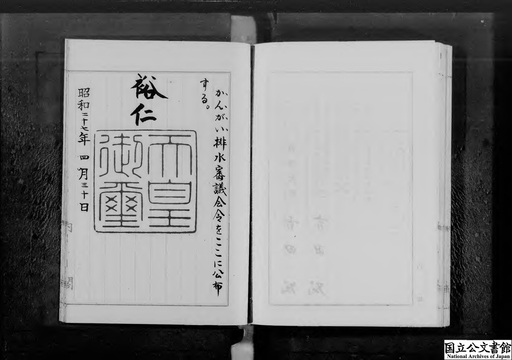 かんがい排水審議会令をここに公布
する。
裕仁
天皇
御璽
昭和二十七年四月三十日
国立公文書館
National Archives of Japan